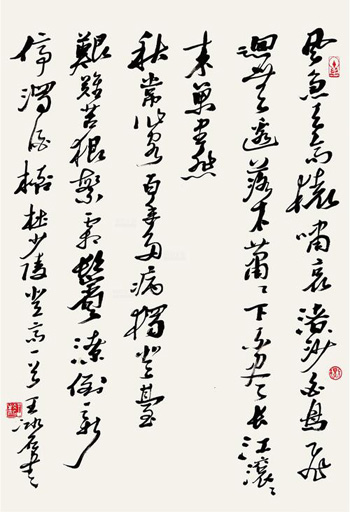 風急天高猿嘯哀渚沙白鳥飛
迴無邊落木蕭〻下不盡長江滾〻
來萬里悲
秋常作客百年多病獨登臺
艱難苦恨繁霜鬢潦倒新
停濁酒杯 杜少陵登高一首 王冰石書